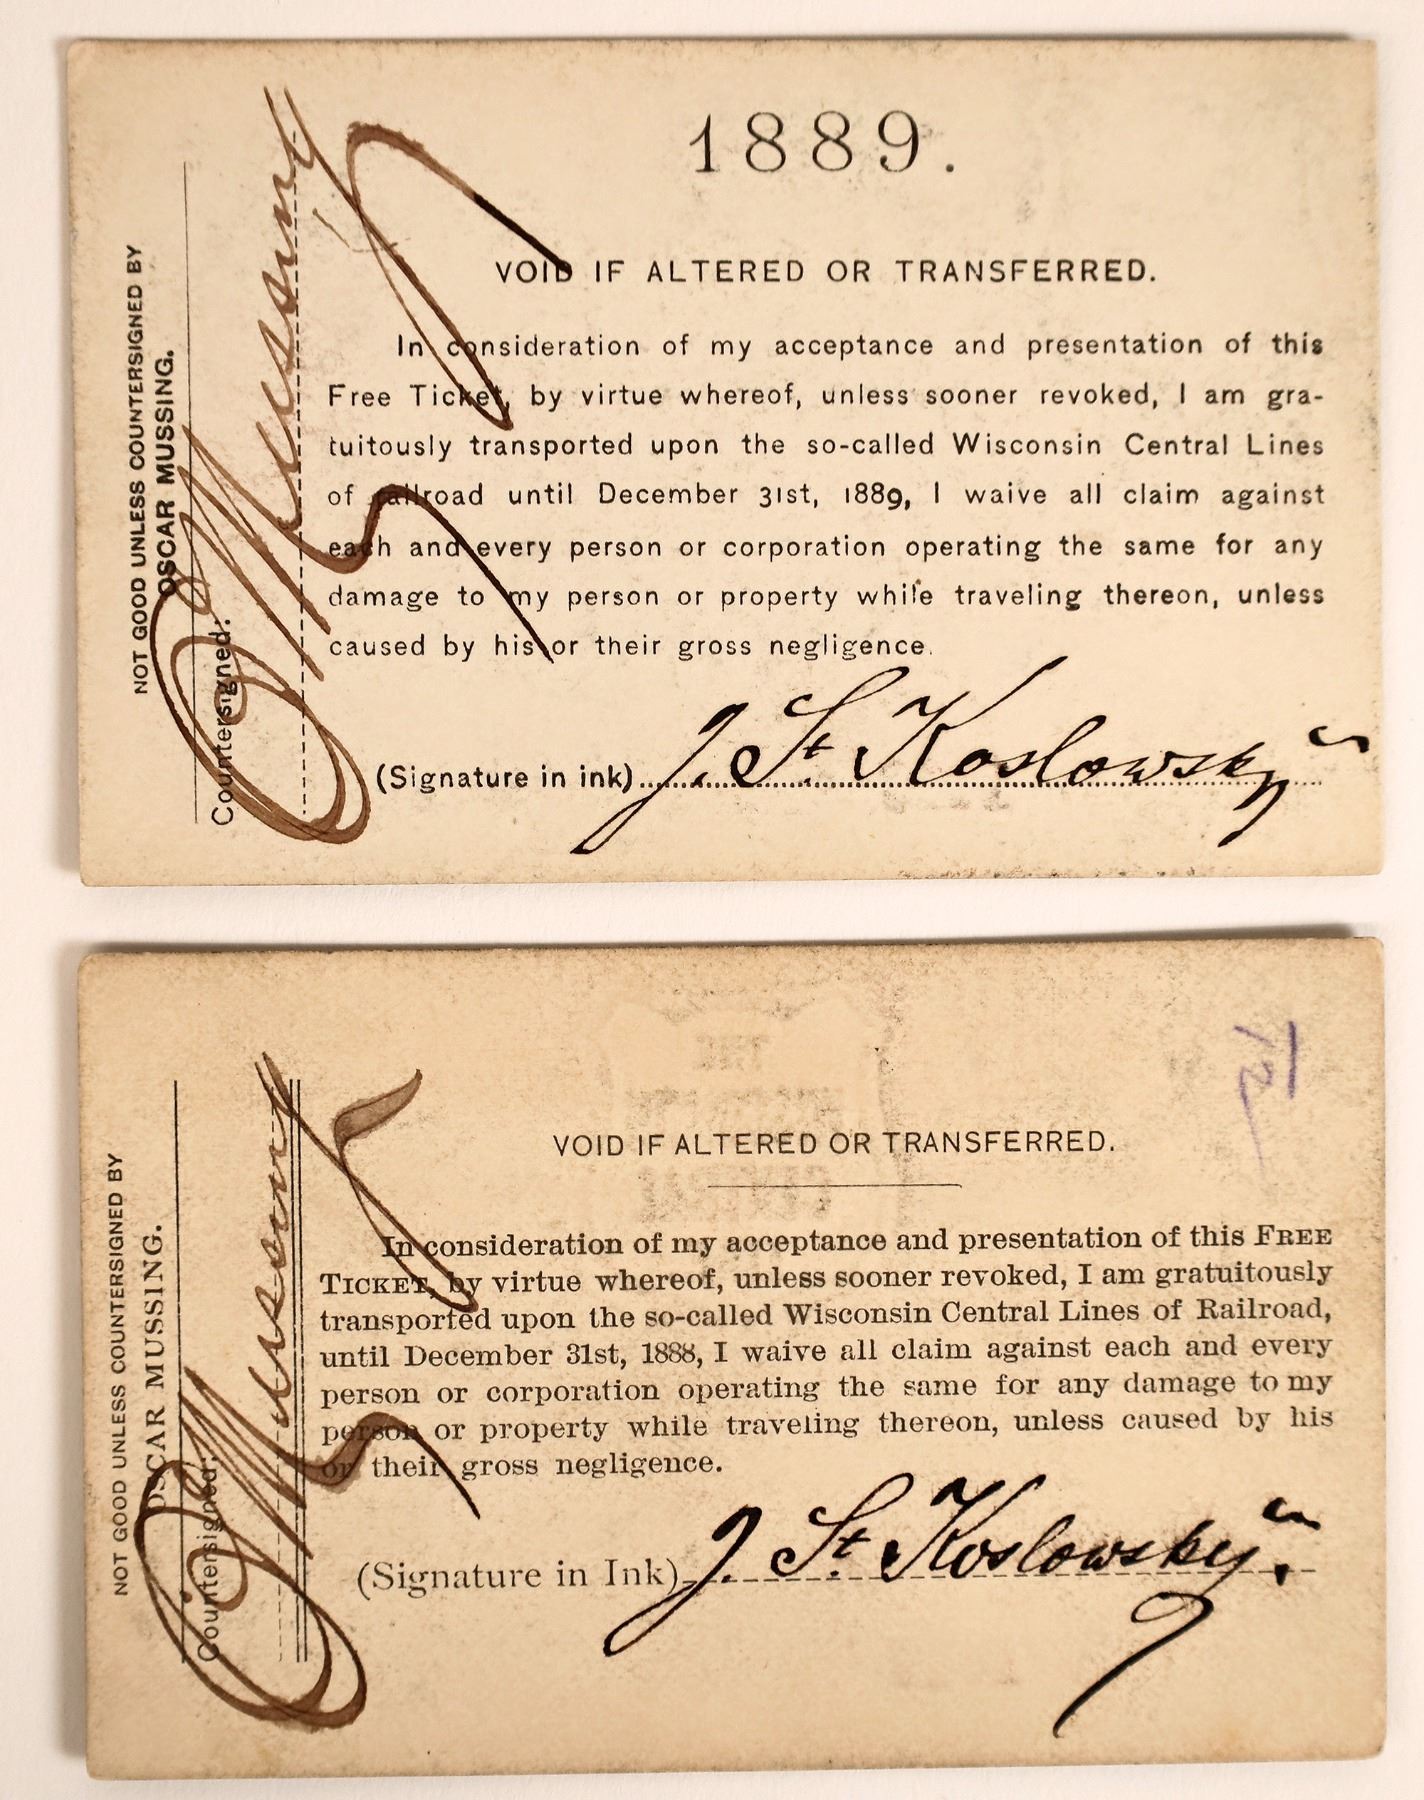 1889.
VOID IF ALTERED OR TRANSFERRED.
In consideration of my acceptance and presentation of this
Free Ticket, by virtue whereof, unless sooner revoked, I am gra-
tuitously transported upon the so-called Wisconsin Central Lines
of railroad until December 31st, 1889, I waive all claim against
each and every person or corporation operating the same for any
damage to my person or property while traveling thereon, unless
caused by his or their gross negligence.
(Signature in ink) J. St. Koslowsky
NOT GOOD UNLESS COUNTERSIGNED BY
OSCAR MUSSING.
Countersigned:
O Mussing
VOID IF ALTERED OR TRANSFERRED.
In consideration of my acceptance and presentation of this FREE
TICKET, by virtue whereof, unless sooner revoked, I am gratuitously
transported upon the so-called Wisconsin Central Lines of Railroad,
until December 31st, 1888, I waive all claim against each and every
person or corporation operating the same for any damage to my
person or property while traveling thereon, unless caused by his
or their gross negligence.
(Signature in Ink) J. St. Koslowsky.
NOT GOOD UNLESS COUNTERSIGNED BY
OSCAR MUSSING.
Countersigned:
O Mussing